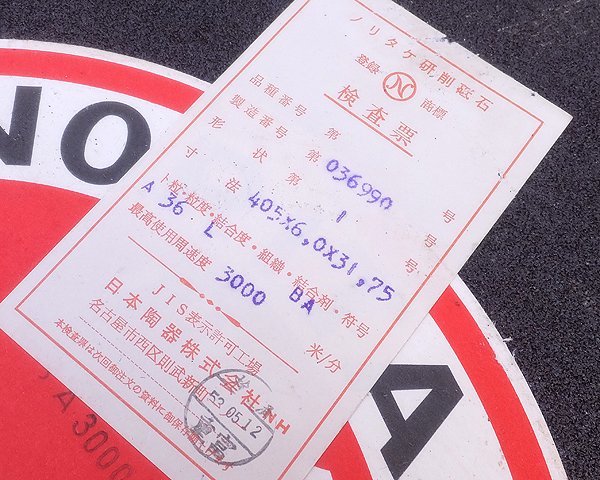 ノリタケ研削砥石
登録 N 商標
検査票
品質番号 第 号
製造番号 第 036990 号
形状 第 1 号
寸法 405×6,0×31,75
ト粒・粒度・結合度・組織・結合剤・符号
A 36 L BA
最高使用周速度 3000 米/分
JIS表示許可工場
日本陶器株式会社
名古屋市西区則武新町
NH
本検査票は次回御注文の資料に御保存
52.05.12
重富
NO
A
A 3000